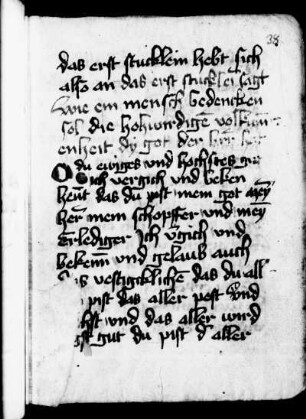 38
das erst stucklein hebt sich
also an das erst stucklei sagt
wie ein mensch bedencken
sol die hohwirdigē volkūm
enheit dy got der her hat
O du ewiges und hochstes gut
ich vergich und beken
heut das du pist mein got mey
her mein schopffer und mey
Erlediger Ich v̄gich und
bekenn und gelaub auch
vestigklichē das du all
pist das aller pest und
und das aller wird
gst gut du pist d aller